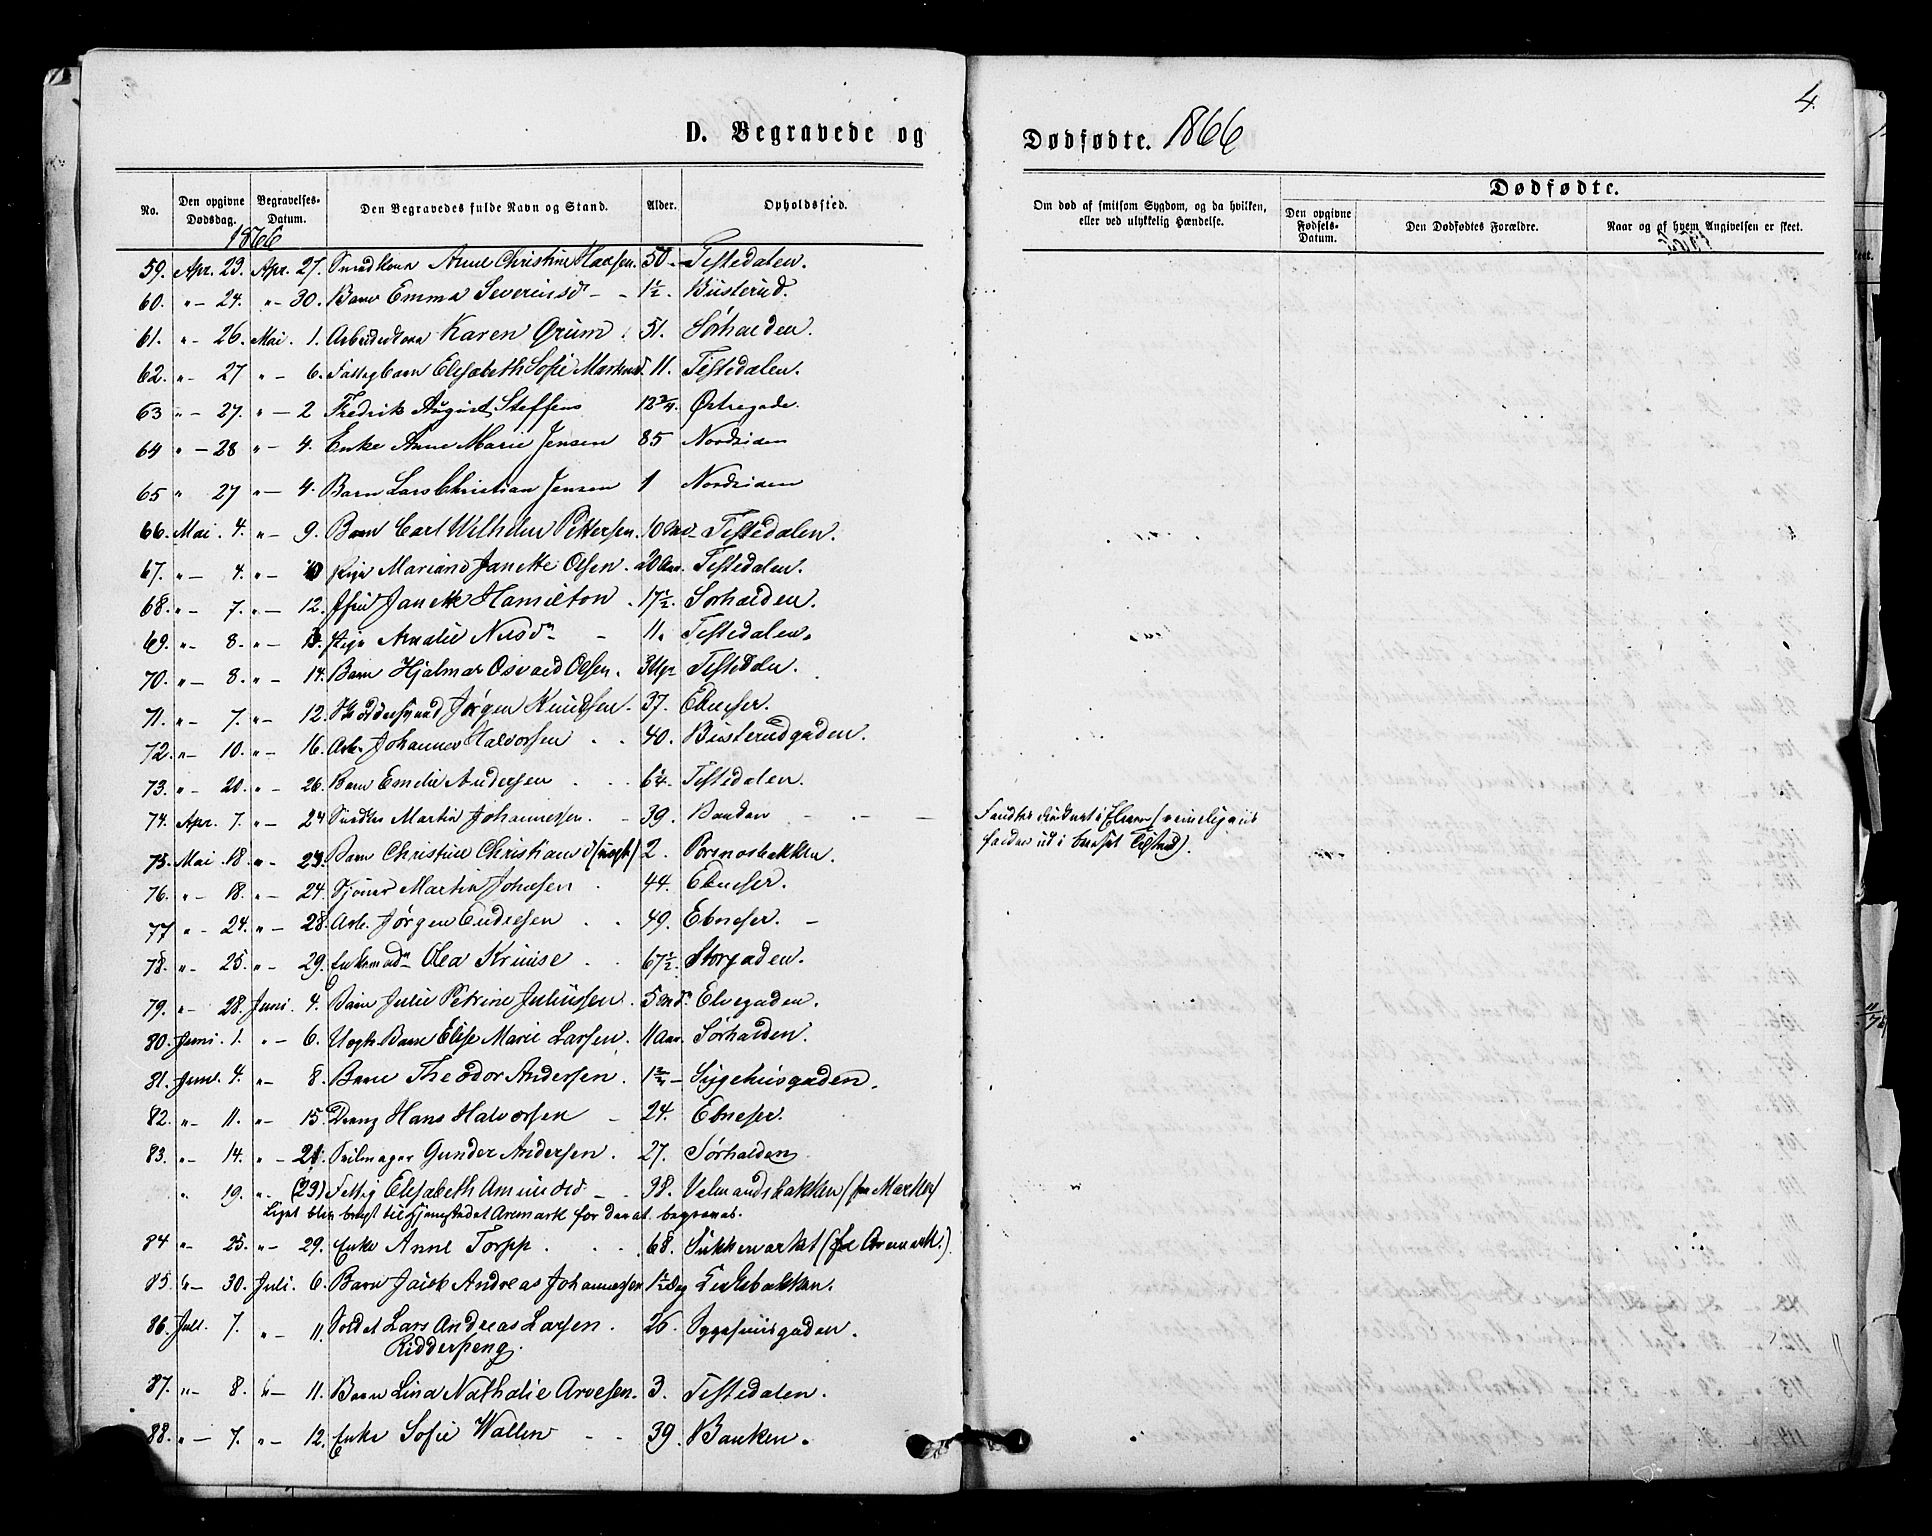 4.
D. Begravede og Dødfødte. 1866
No. Den opgivne Dødsdag. Begravelses-Datum. Den Begravedes fulde Navn og Stand. Alder. Opholdssted. Om død af smitsom Sygdom, og da hvilken, eller ved ulykkelig Hændelse. Dødfødte. Den opgivne Fødsels-Datum. Den Dødfødtes Forældre. Naar og af hvem Angivelsen er skeet.
1866
59. Apr. 23. Apr. 27. Anne Christine Hansen. 50. Tistedalen.
60. " - 24. " - 30. Barn Emma Severinsd - - 1½. Busterud.
61. " - 26. Mai. 1. Arbeiderkone Karen Grum. 51. Sørhalden.
62. " - 27 " - 6. Fattigbarn Elisabeth Sofie 11. Tistedalen.
63 " - 27. " - 2 Fredrik August Steffens 12¾. Østregade.
64 " - 28 " - 4. Enke Anne Marie Jensen 85 Nordsiden
65 " 27 " - 4. Barn Lars Christian Jensen 1 Nordsiden
66. Mai. 4. " - 9. Barn Carl Wilhelm Pettersen. Tistedalen.
67. " - 4. " - 10 Pige Janette Olsen. 20 Aar. Tistedalen.
68. " - 7. " - 12. Janette Hamilton. 17½. Sørhalden.
69. " - 8. " - Pige Amalie Nilsdn - 11. Tistedalen.
70. " - 8. " - 14. Barn Hjalmar Osvald Olsen. Tistedalen.
71. " - 7. " - 12. Jørgen Knudsen. 37. Ebneser.
72. " - 10. " - 16. Arb. Johannes Halvorsen . . 40. Busterudgaden.
73. " - 20. " - 26. Barn Emilie Andersen . . . 6¼. Tistedalen.
74. Apr. 7. " - 24 Martin Johannessen. - 39. Banken - - - Fandtes druknet i Elven (rimeligviis
falden ud i beruset Tilstand).
75. Mai. 18. " - 23. Barn Christine Christiansd (uægt.) 2. Porsnesbakken.
76. " - 18. " - 24. Martin Johnsen . 44. Ebneser.
77 " - 24. " - 28. Arb. Jørgen Endresen . . 49. Ebneser. -
78. " - 25. " - 29. Olea Kruuse . . 67½. Storgaden.
79. " - 28. Juni. 4. Barn Julie Petrine Juliussen. 5 Elvegaden.
80. Juni. 1. " - 6. Uægte Barn Elise Marie Larsen. 11 Aar. Sørhalden.
81. Juni. 4. " - 8. Barn Theodor Andersen . Sygehusgaden.
82. " - 11. " - 15. Dreng Hans Halvorsen - 24. Ebneser.
83. " - 14. " - 21. Seilmager Gunder Andersen. 27. Sørhalden
" 19. " (23) Fattig Elisabeth Amundsd - - 38. (fra Marker)
Liget blev bragt til Hjemstedet Aremark for der at begraves.
84 " - 25. " - 29. Enke Anne Torpp . . . 68. (fra Aremark.)
85. " - 30. Juli. 6. Barn Jacob Andreas Johannessen
86. Juli. 7. " - 11. Soldat Lars Andreas Larsen . 26. Sygehuusgaden.
Ridderspeng.
87. " - 8. " - 11. Barn Lina Nathalie Arvesen. 3. Tistedalen.
88. " - 7. " - 12. Enke Sofie Wallen - - 39. Banken.